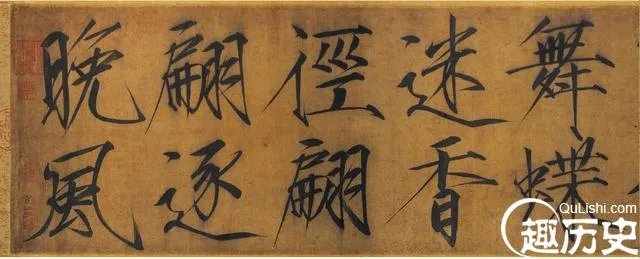 舞蝶
迷香
徑翩
翩逐
晚風
QuLishi.com
趣历史